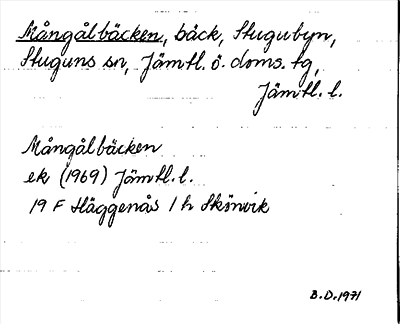 Mångålbäcken, bäck, Stugubyn,
Stuguns sn, Jämtl. ö. doms. tg,
Jämtl. l.
Mångålbäcken
ek (1969) Jämtl. l.
19 F Häggenås 1 h Skönvik
B.D. 1971